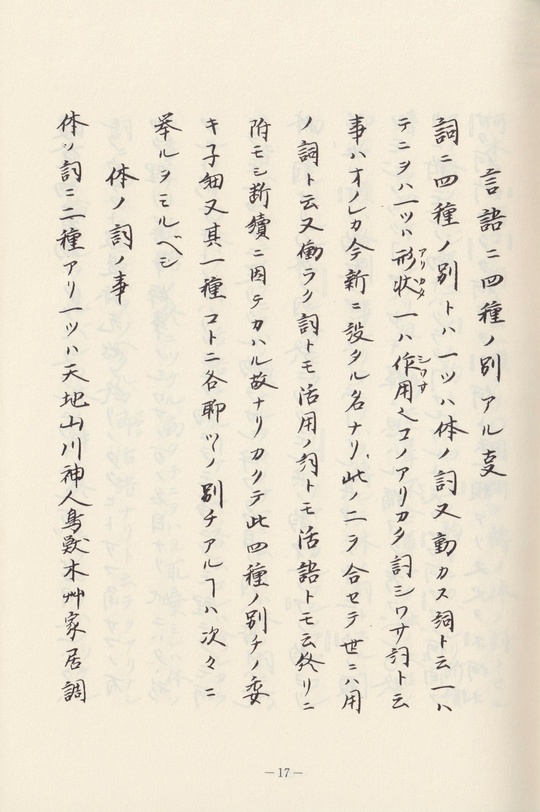 言語ニ四種ノ別アル叓
詞ニ四種ノ別トハ一ツハ体ノ詞又動カヌ詞ト云一ハ
テニヲハ一ツハ形状一ハ作用也コノアリカタ詞シワサ詞ト云
アリカタ
シワサ
事ハオノレカ今新ニ設タル名ナリ此ノ二ヲ合セテ世ニハ用
ノ詞ト云又働ラク詞トモ活用ノ詞トモ活語トモ云終リニ
附モシ断続ニ因テカハル故ナリカクテ此四種ノ別チノ委
キ子細又其一種コトニ各聊ツヽノ別チアルヿハ次々ニ
挙ルヲモルベシ
体ノ詞ノ事
体ノ詞ニ二種アリ一ツハ天地山川神人鳥獣木艸家居調
—17—